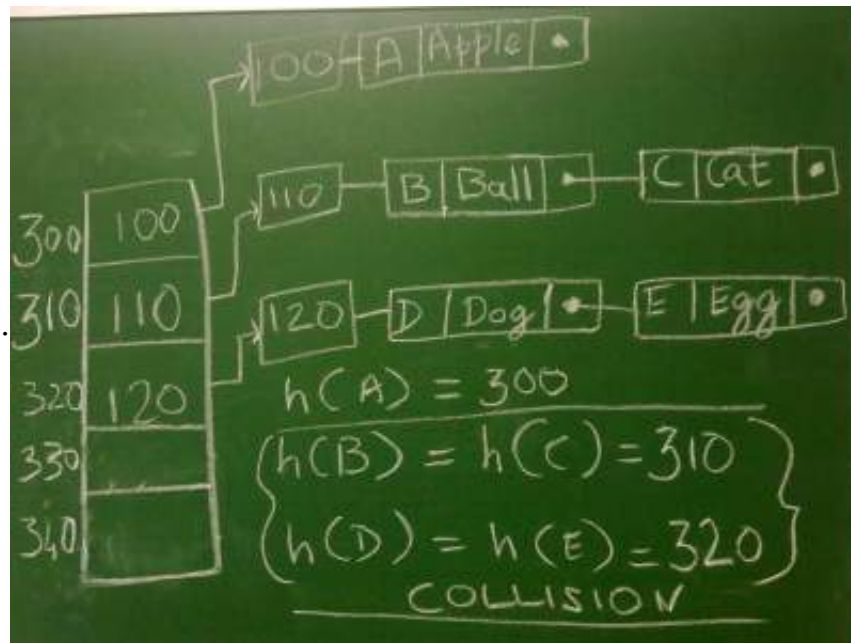 100 A Apple
110 B Ball C Cat
120 D Dog E Egg
300 100
310 110
320 120
330
340
h(A) = 300
h(B) = h(C) = 310
h(D) = h(E) = 320
COLLISION